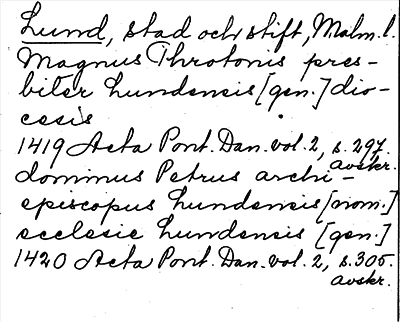 Lund, stad och stift, Malm. l.
Magnus Throtonis pres-
biter lundensis [gen.] dio-
cesis
1419 Acta Pont. Dan. vol. 2, s. 297.
avskr.
dominus Petrus archi-
episcopus lundensis [nom.]
ecclesie lundensis [gen.]
1420 Acta Pont. Dan. vol. 2, s. 305.
avskr.